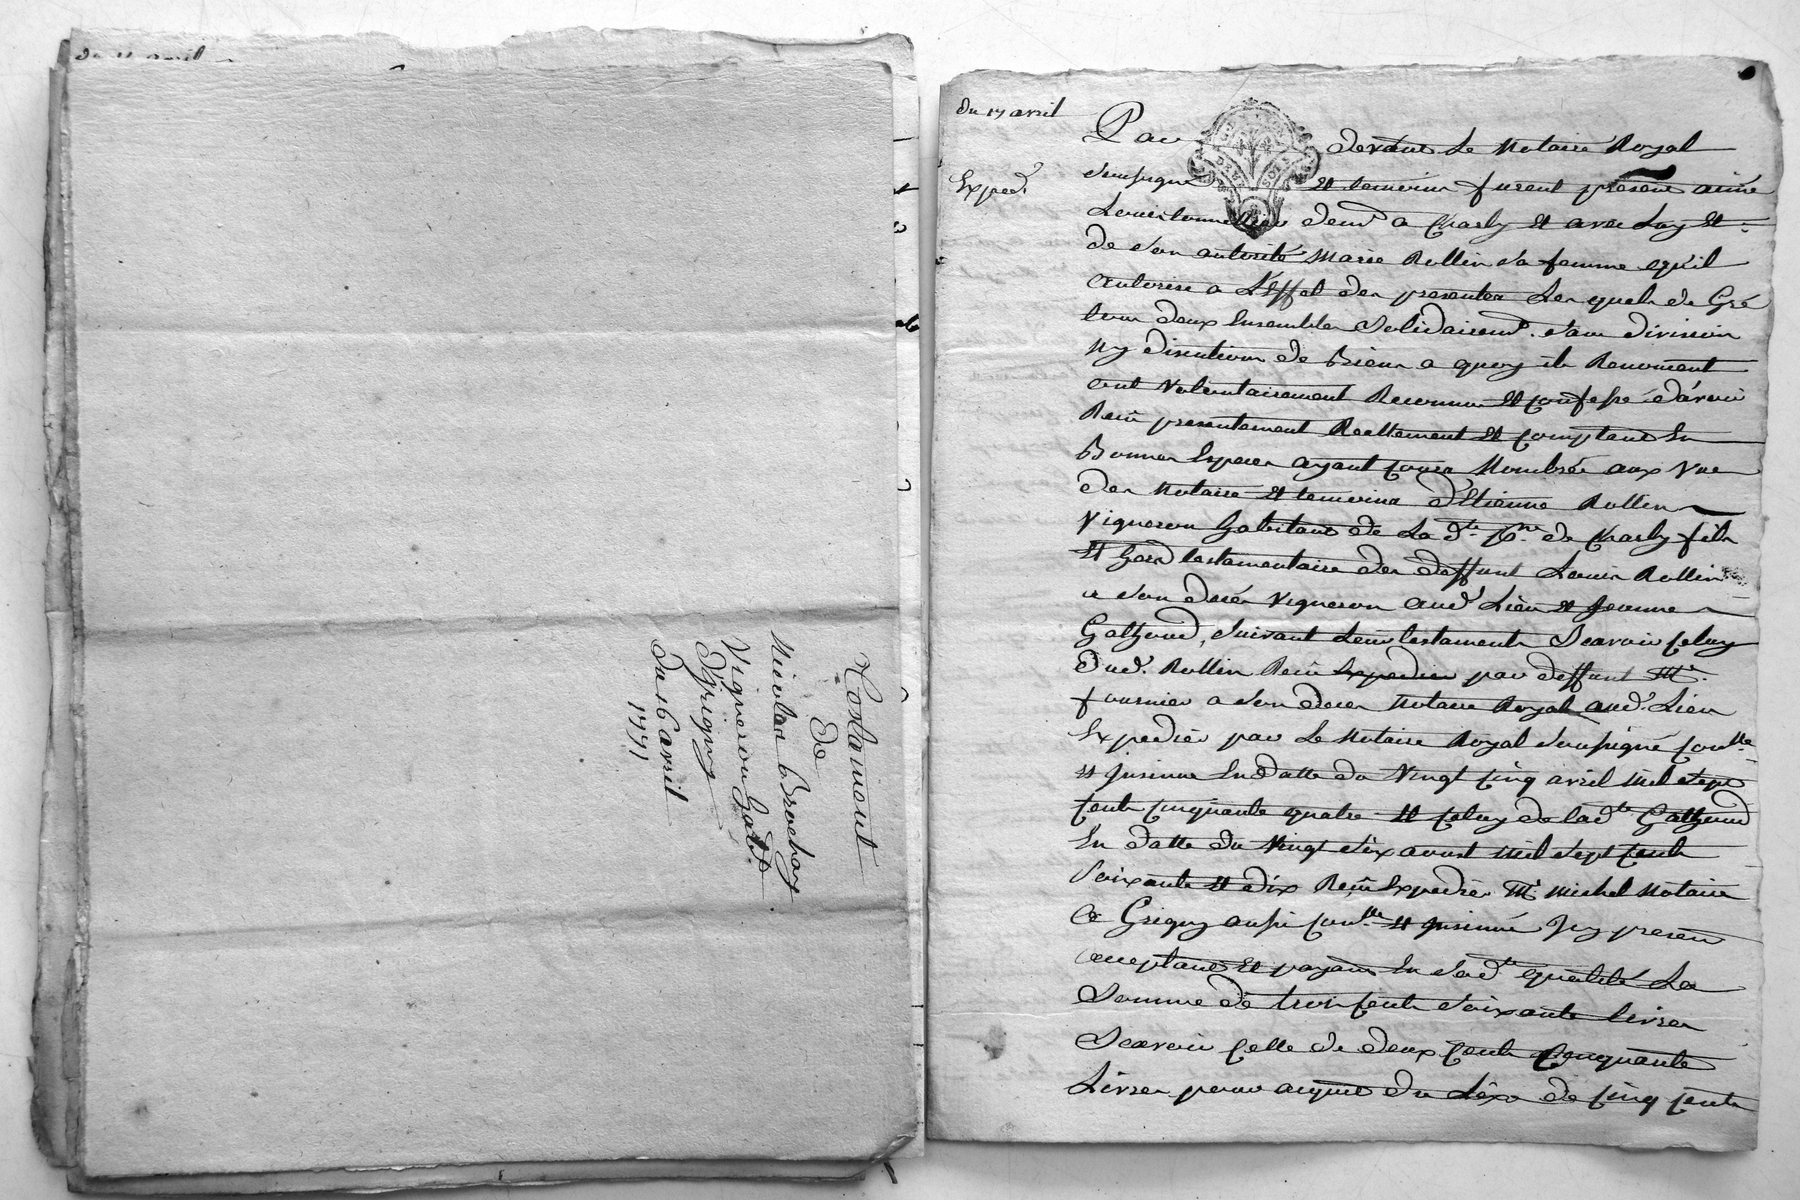 Testament
de
Nicolas Brochay
Vigneron habt.
Grigny
Du 16 avril
1771
du 17 avril
Exped.
Par devant Le Notaire Royal
soussigné Et temoins furent présens aimé
Louis tonnelier dem.t a Charly Et avec Luy Et
de son autorité Marie Rollin sa femme qu'il
autorise a L'Effet des presentes Lesquels de Gré
tous deux Ensembles solidairem.t sans division
Ny discution de Biens a quoy ils Renoncent
ont volontairement Reconnu Et confessé d'avoir
Reçû presentement Reellement Et comptant En
Bonnes Especes ayant cours Nombrées aux vue
des Notaire Et temoins d'Etienne Rollin
Vigneron habitant de La d.te p.sse de Charly fils
Et herd testamentaire des deffunt Louis Rollin
a son deces vigneron aud. Lieu Et jeanne
Gathoud, suivant Leurs testaments Scavoir celuy
dud. Rollin Reçû Expedié par deffunt M.e
fournier a son deces Notaire Royal aud. Lieu
Expedié par Le Notaire Royal soussigné con.llé
Et Insinué En datte du vingt cinq avril mil sept
cents cinquante quatre Et celuy de lad.te Gathoud
En datte du vingt six aoust mil sept cents
soixante Et dix Reçû Expedié M.e Michel Notaire
a Grigny aussi con.llé Et Insinué Icy present
acceptant Et payant En sad.te qualité La
Somme de trois cents soixante livres
Scavoir celle de deux cents Cinquante
Livres pour acquit du Lêgs de cinq cents